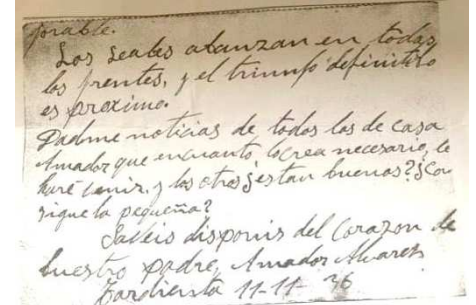 porable.
Los leales abanzan en todos
los frentes, y el triunfo definitibo
es proximo.
Dadme noticias de todos los de casa
Amador que encuanto lo crea necesario, le
haré venir, y los otros ¿estan buenos? ¿Com
sigue la pequeña?
Sabeis disponis del Corazon de
buestro padre, Amador Alvarez
Tardienta 11-11-36